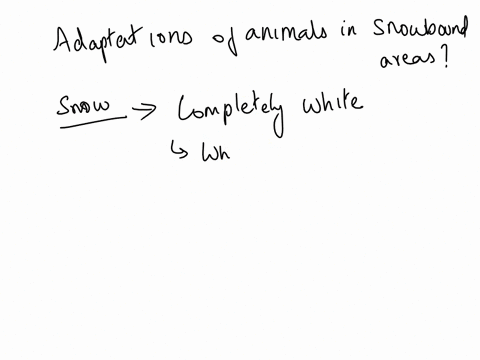 Adaptations of animals in snowbound
areas?
Snow → Completely white
↳ Wh